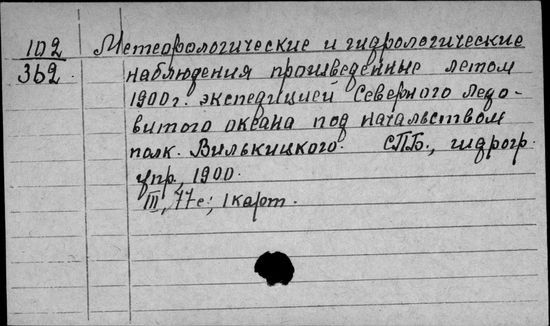 102
362
Метеорологические и гидрологические
наблюдения произведенные летом
1900 г. экспедицией Северного Ледо-
витого океана под начальством
полк. Вилькицкого. СПБ., гидрогр.
упр., 1900.
III, 77 с.; 1 карт.